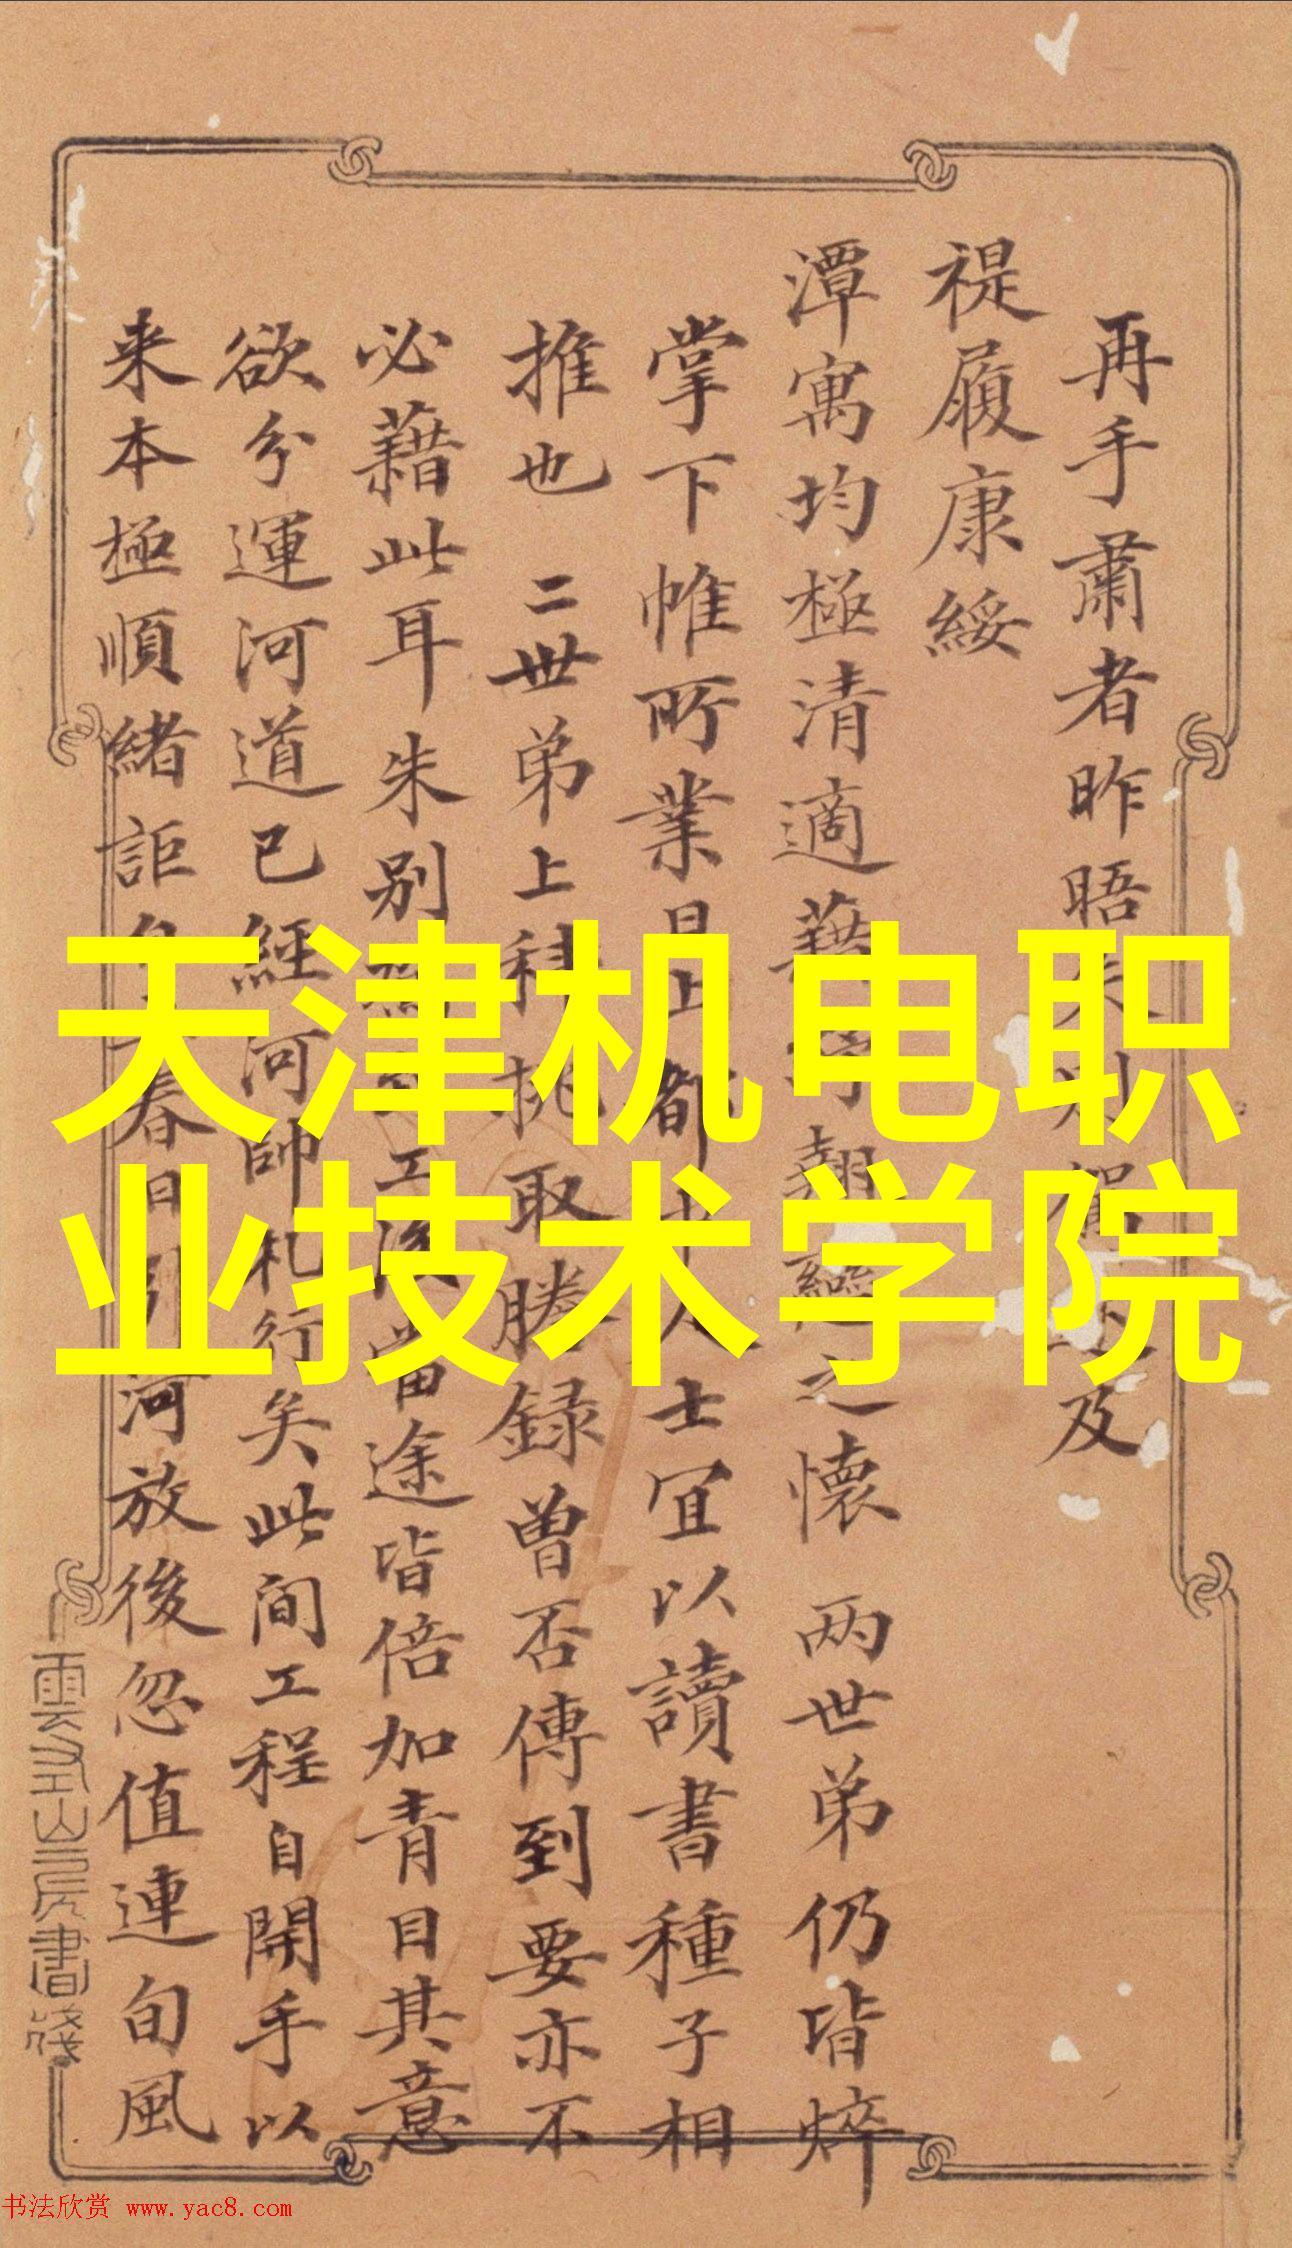 再手肅者昨晤
及
禔履康綏
潭寓均極清適藉
之懷 两世弟仍皆焠
掌下帷所業日上都
士宜以讀書種子相
推也 二世弟上科挑取謄錄曾否傳到要亦不
必藉此耳朱别
當途皆倍加青目其意
欲分運河道已經河帥札行矣此间工程自開手以
来本極順緒詎
春日引河放後忽值連旬風
雲叴山房書牋
天津机电职
业技术学院
书法欣赏 www.yac8.com